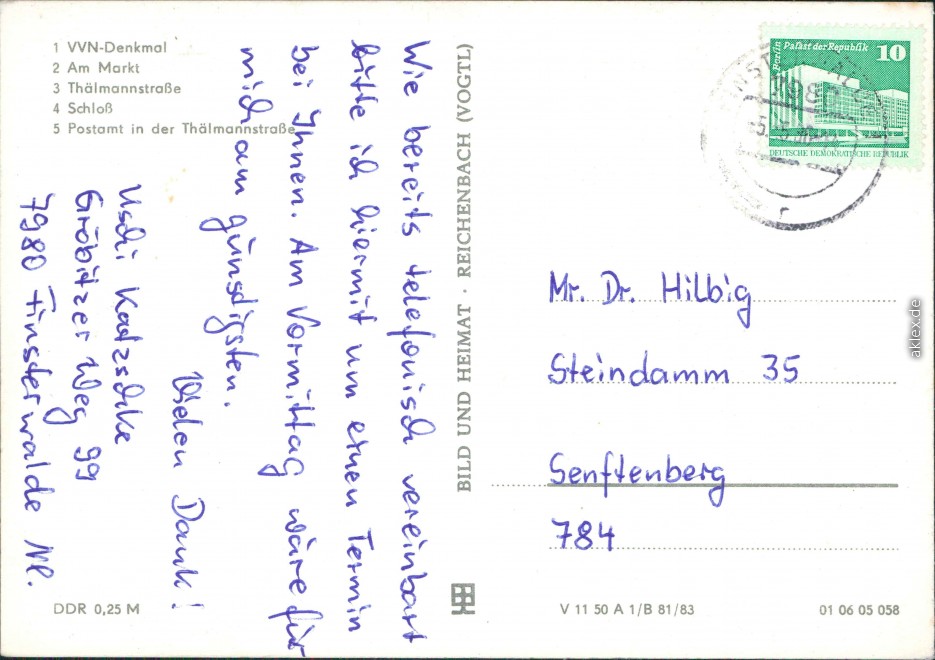 1 VVN-Denkmal
2 Am Markt
3 Thälmannstraße
4 Schloß
5 Postamt in der Thälmannstraße
Wie bereits telefonisch vereinbart
bitte ich hiermit um einen Termin
bei Ihnen. Am Vormittag wäre für
mich am günstigsten.
Vielen Dank!
Uschi Katzschke
Gröbitzer Weg 99
7980 Finsterwalde NL.
BILD UND HEIMAT · REICHENBACH (VOGTL)
Berlin
Palast der Republik 10
DEUTSCHE DEMOKRATISCHE REPUBLIK
Mr. Dr. Hilbig
Steindamm 35
Senftenberg
784
DDR 0,25 M
V 11 50 A 1/B 81/83
01 06 05 058
aklex.de